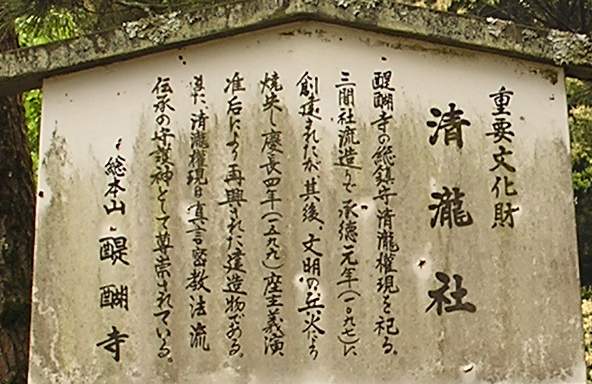 重要文化財
清瀧社
醍醐寺の総鎮守清瀧権現を祀る。
三間社流造りで承徳元年(一〇九七)に
創建されたが、其後、文明の兵火により
焼失し慶長四年(一五九九)座主義演
准后により再興された建造物である。
また清瀧権現は真言密教法流
伝承の守護神として尊崇されている。
総本山 醍醐寺